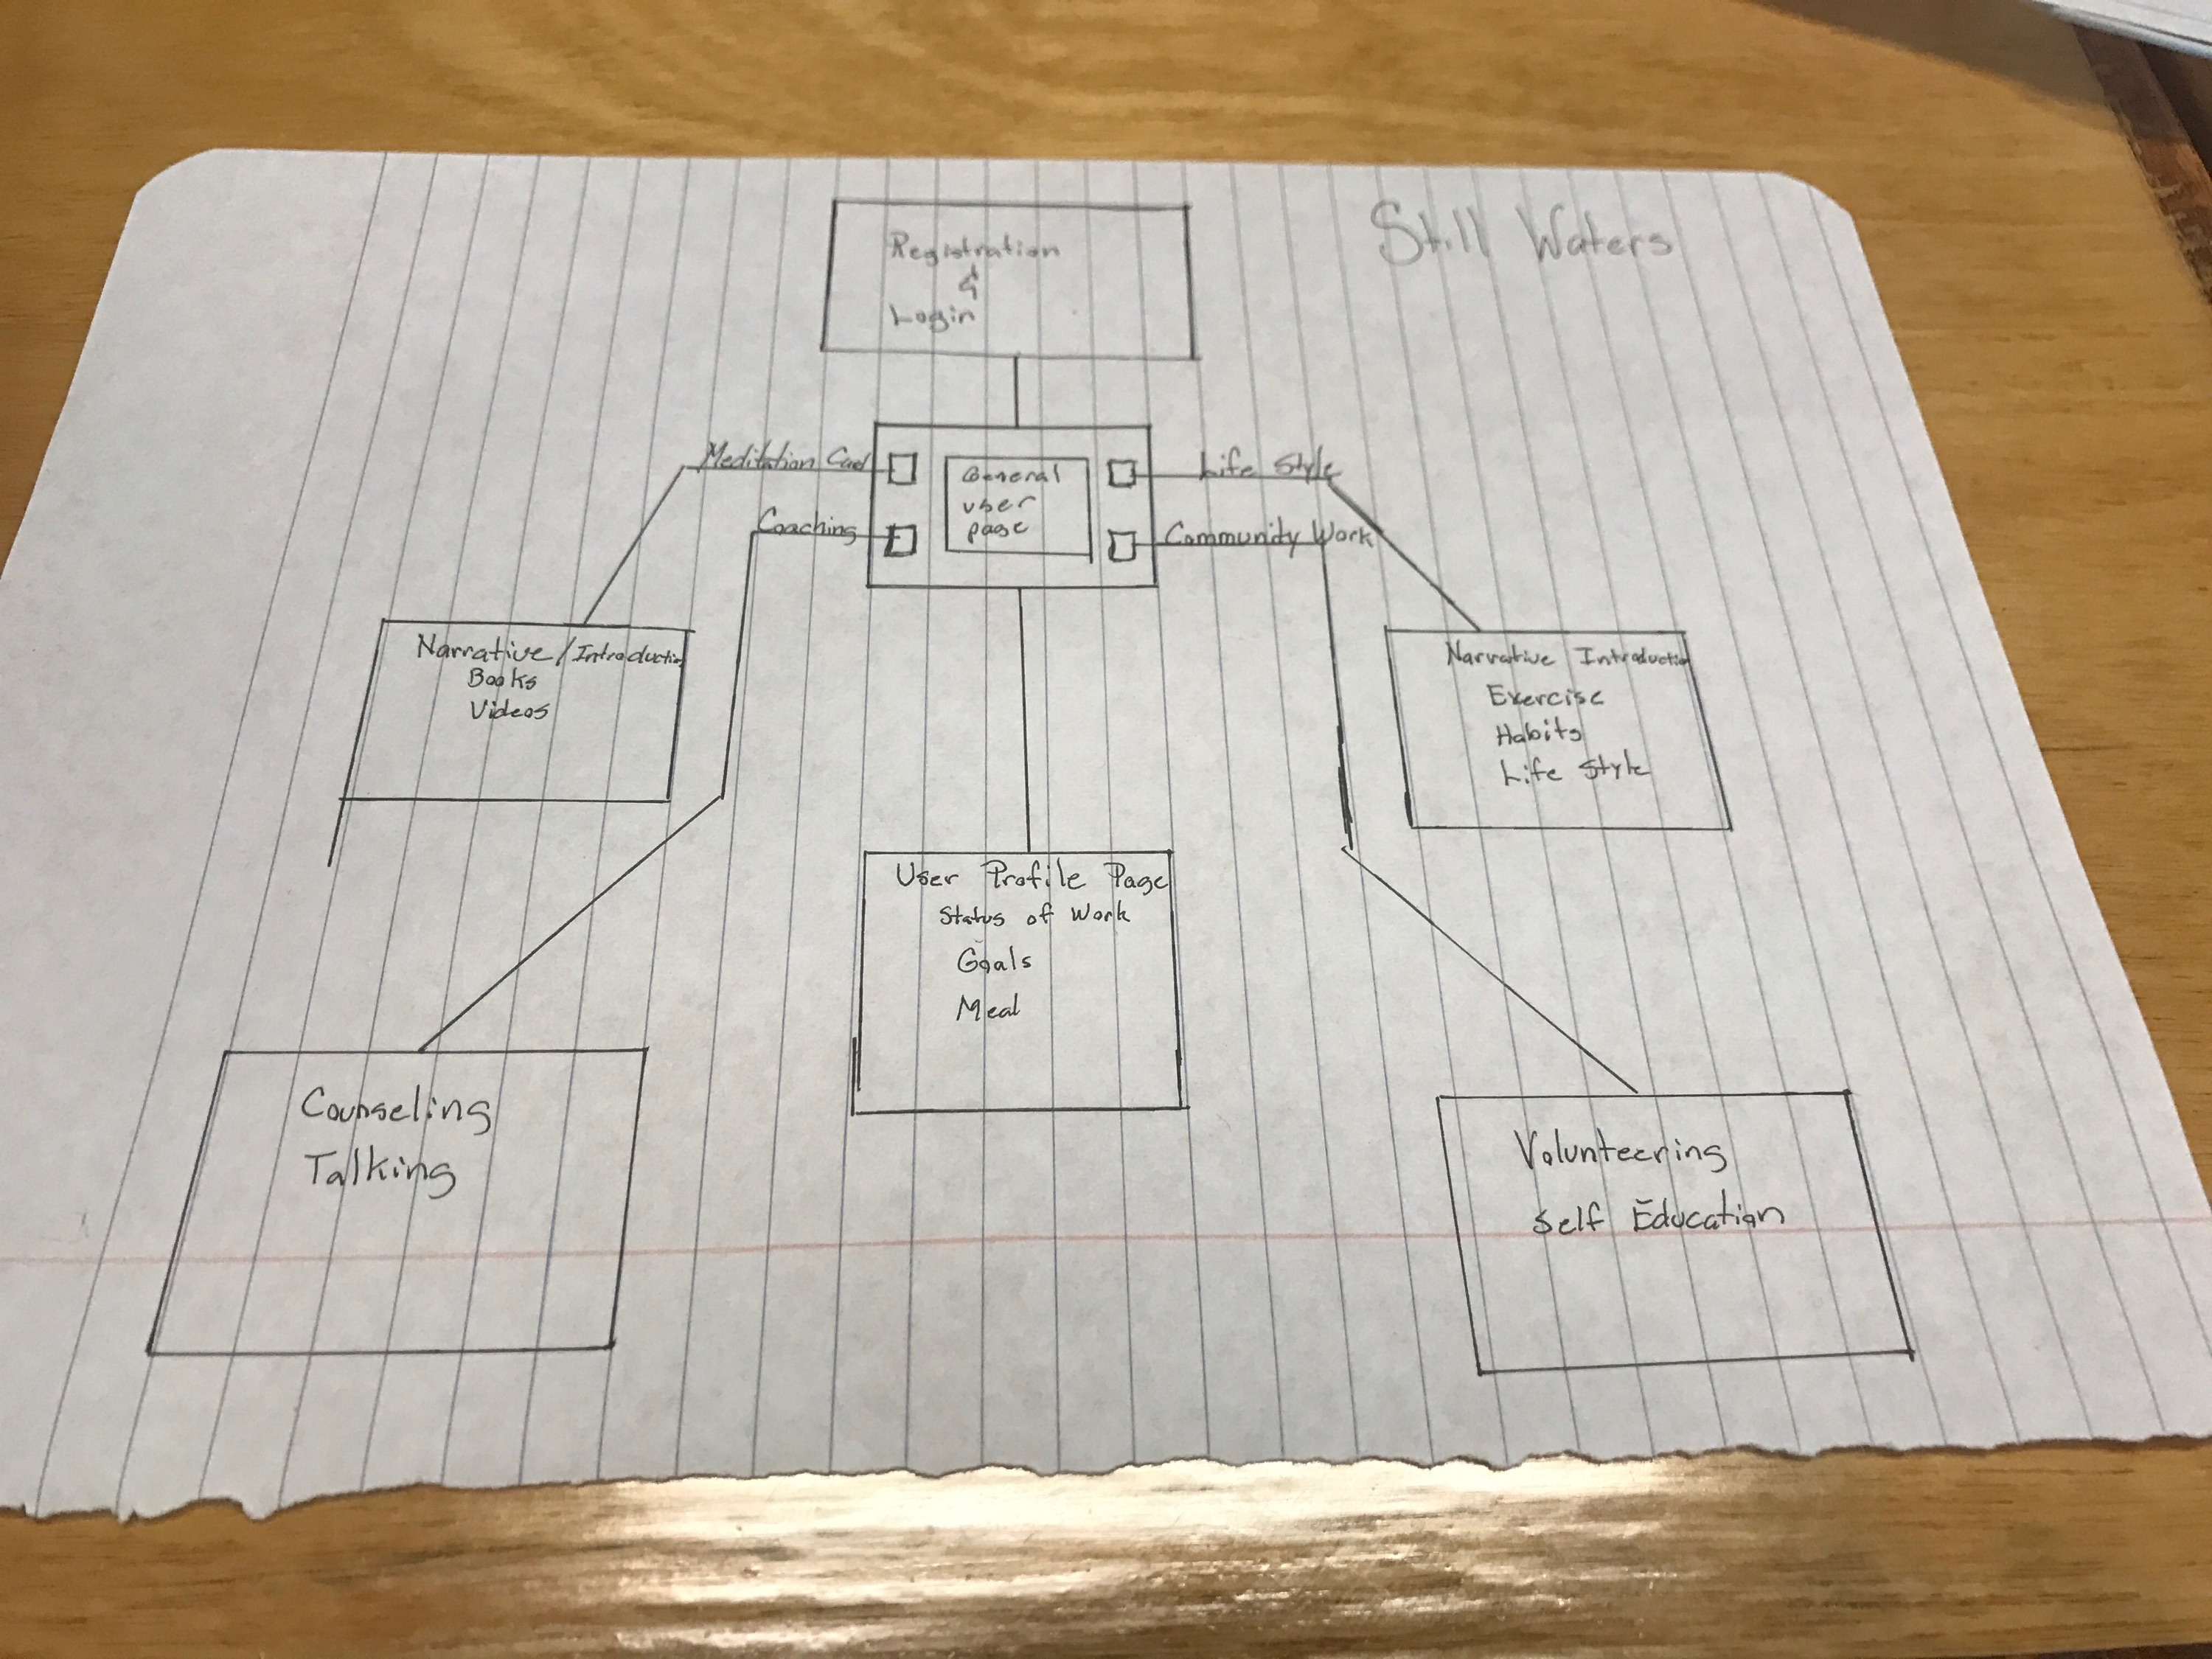 Still Waters
Registration
&
Login
Meditation
Life Style
General
user
page
Coaching
Community Work
Narrative/Introduction
Books
Videos
Narrative Introduction
Exercise
Habits
Life Style
User Profile Page
Status of Work
Goals
Meal
Counseling
Talking
Volunteering
Self Education